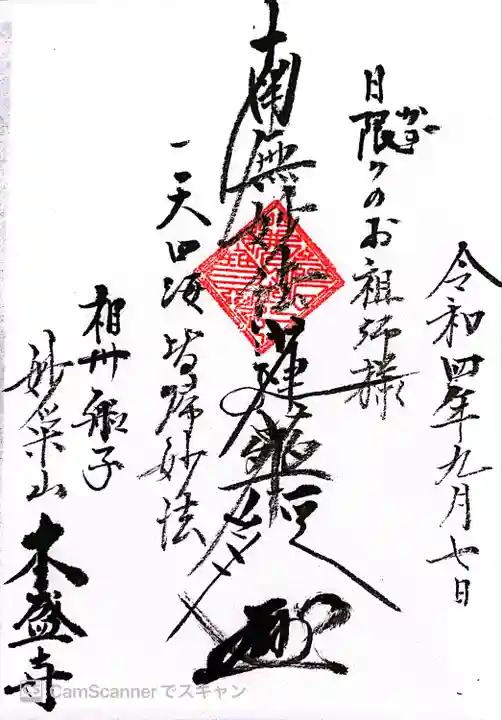 令和四年九月七日
日限りのお祖師様
南無妙法蓮華経
一天四海皆帰妙法
相州飯子
妙栄山
本盛寺
CamScannerでスキャン